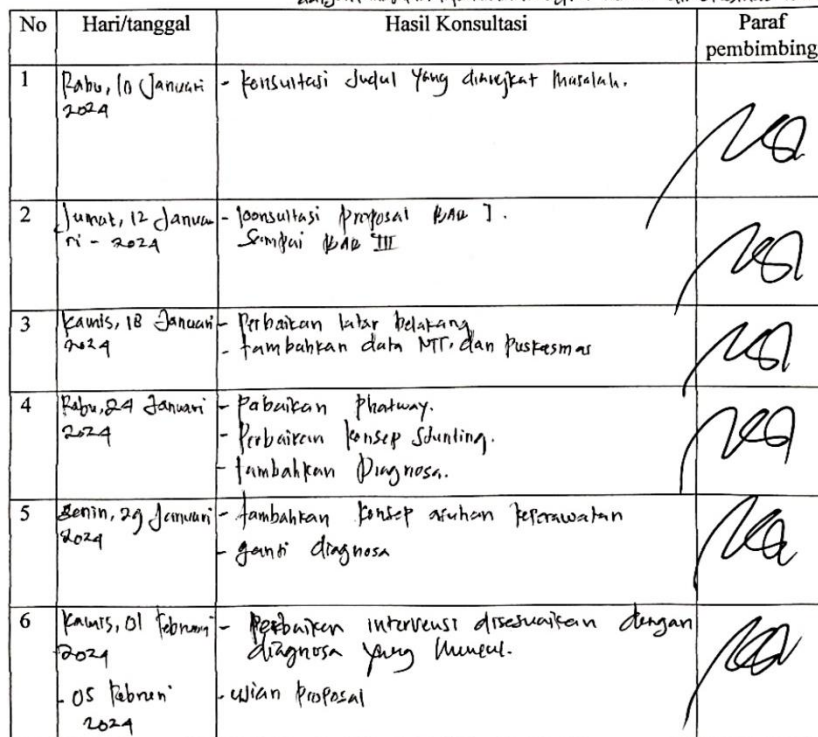 No Hari/tanggal Hasil Konsultasi Paraf
pembimbing
1 Rabu, 10 Januari - konsultasi Judul yang diangkat Masalah.
2024
2 Jumat, 12 Janua - konsultasi proposal BAB I.
ri - 2024 Sampai BAB III
3 Kamis, 18 Januari - Perbaikan latar belakang
2024 - tambahkan data NTT, dan Puskesmas
4 Rabu, 24 Januari - Pabaikan Phatway.
2024 - Perbaikan konsep Stunting.
- tambahkan Diagnosa.
5 Senin, 29 Januari - tambahkan konsep asuhan keperawatan
2024 - ganti diagnosa
6 Kamis, 01 februari - Perbaikan intervensi disesuaikan dengan
2024 diagnosa yang Muncul.
- 05 februari - ujian proposal
2024